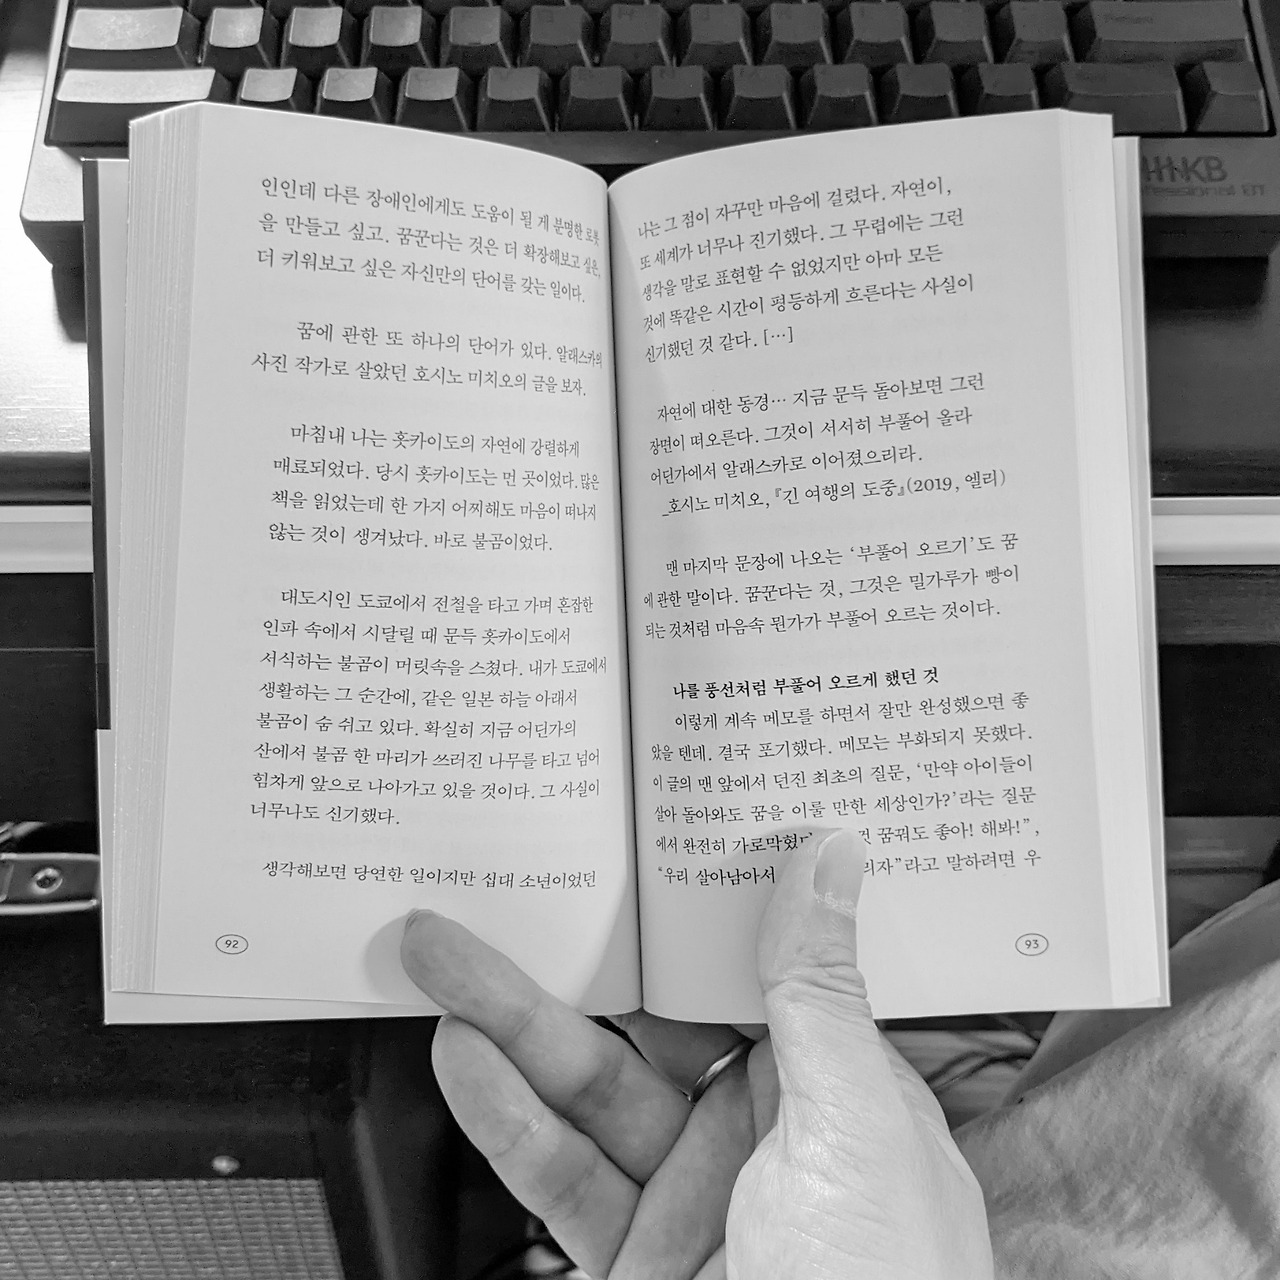 HHKB
Professional
인인데 다른 장애인에게도 도움이 될 게 분명한 로봇
을 만들고 싶고. 꿈꾼다는 것은 더 확장해보고 싶은,
더 키워보고 싶은 자신만의 단어를 갖는 일이다.
꿈에 관한 또 하나의 단어가 있다. 알래스카의
사진 작가로 살았던 호시노 미치오의 글을 보자.
마침내 나는 홋카이도의 자연에 강렬하게
매료되었다. 당시 홋카이도는 먼 곳이었다. 많은
책을 읽었는데 한 가지 어찌해도 마음이 떠나지
않는 것이 생겨났다. 바로 불곰이었다.
대도시인 도쿄에서 전철을 타고 가며 혼잡한
인파 속에서 시달릴 때 문득 홋카이도에서
서식하는 불곰이 머릿속을 스쳤다. 내가 도쿄에서
생활하는 그 순간에, 같은 일본 하늘 아래서
불곰이 숨 쉬고 있다. 확실히 지금 어딘가의
산에서 불곰 한 마리가 쓰러진 나무를 타고 넘어
힘차게 앞으로 나아가고 있을 것이다. 그 사실이
너무나도 신기했다.
생각해보면 당연한 일이지만 십대 소년이었던
92
나는 그 점이 자꾸만 마음에 걸렸다. 자연이,
또 세계가 너무나 진기했다. 그 무렵에는 그런
생각을 말로 표현할 수 없었지만 아마 모든
것에 똑같은 시간이 평등하게 흐른다는 사실이
신기했던 것 같다. […]
자연에 대한 동경… 지금 문득 돌아보면 그런
장면이 떠오른다. 그것이 서서히 부풀어 올라
어딘가에서 알래스카로 이어졌으리라.
_호시노 미치오, 『긴 여행의 도중』(2019, 엘리)
맨 마지막 문장에 나오는 ‘부풀어 오르기’도 꿈
에 관한 말이다. 꿈꾼다는 것, 그것은 밀가루가 빵이
되는 것처럼 마음속 뭔가가 부풀어 오르는 것이다.
나를 풍선처럼 부풀어 오르게 했던 것
이렇게 계속 메모를 하면서 잘만 완성했으면 좋
았을 텐데. 결국 포기했다. 메모는 부화되지 못했다.
이 글의 맨 앞에서 던진 최초의 질문, ‘만약 아이들이
살아 돌아와도 꿈을 이룰 만한 세상인가?’라는 질문
에서 완전히 가로막혔 꿈꿔도 좋아! 해봐!”,
“우리 살아남아서 리자”라고 말하려면 우
93